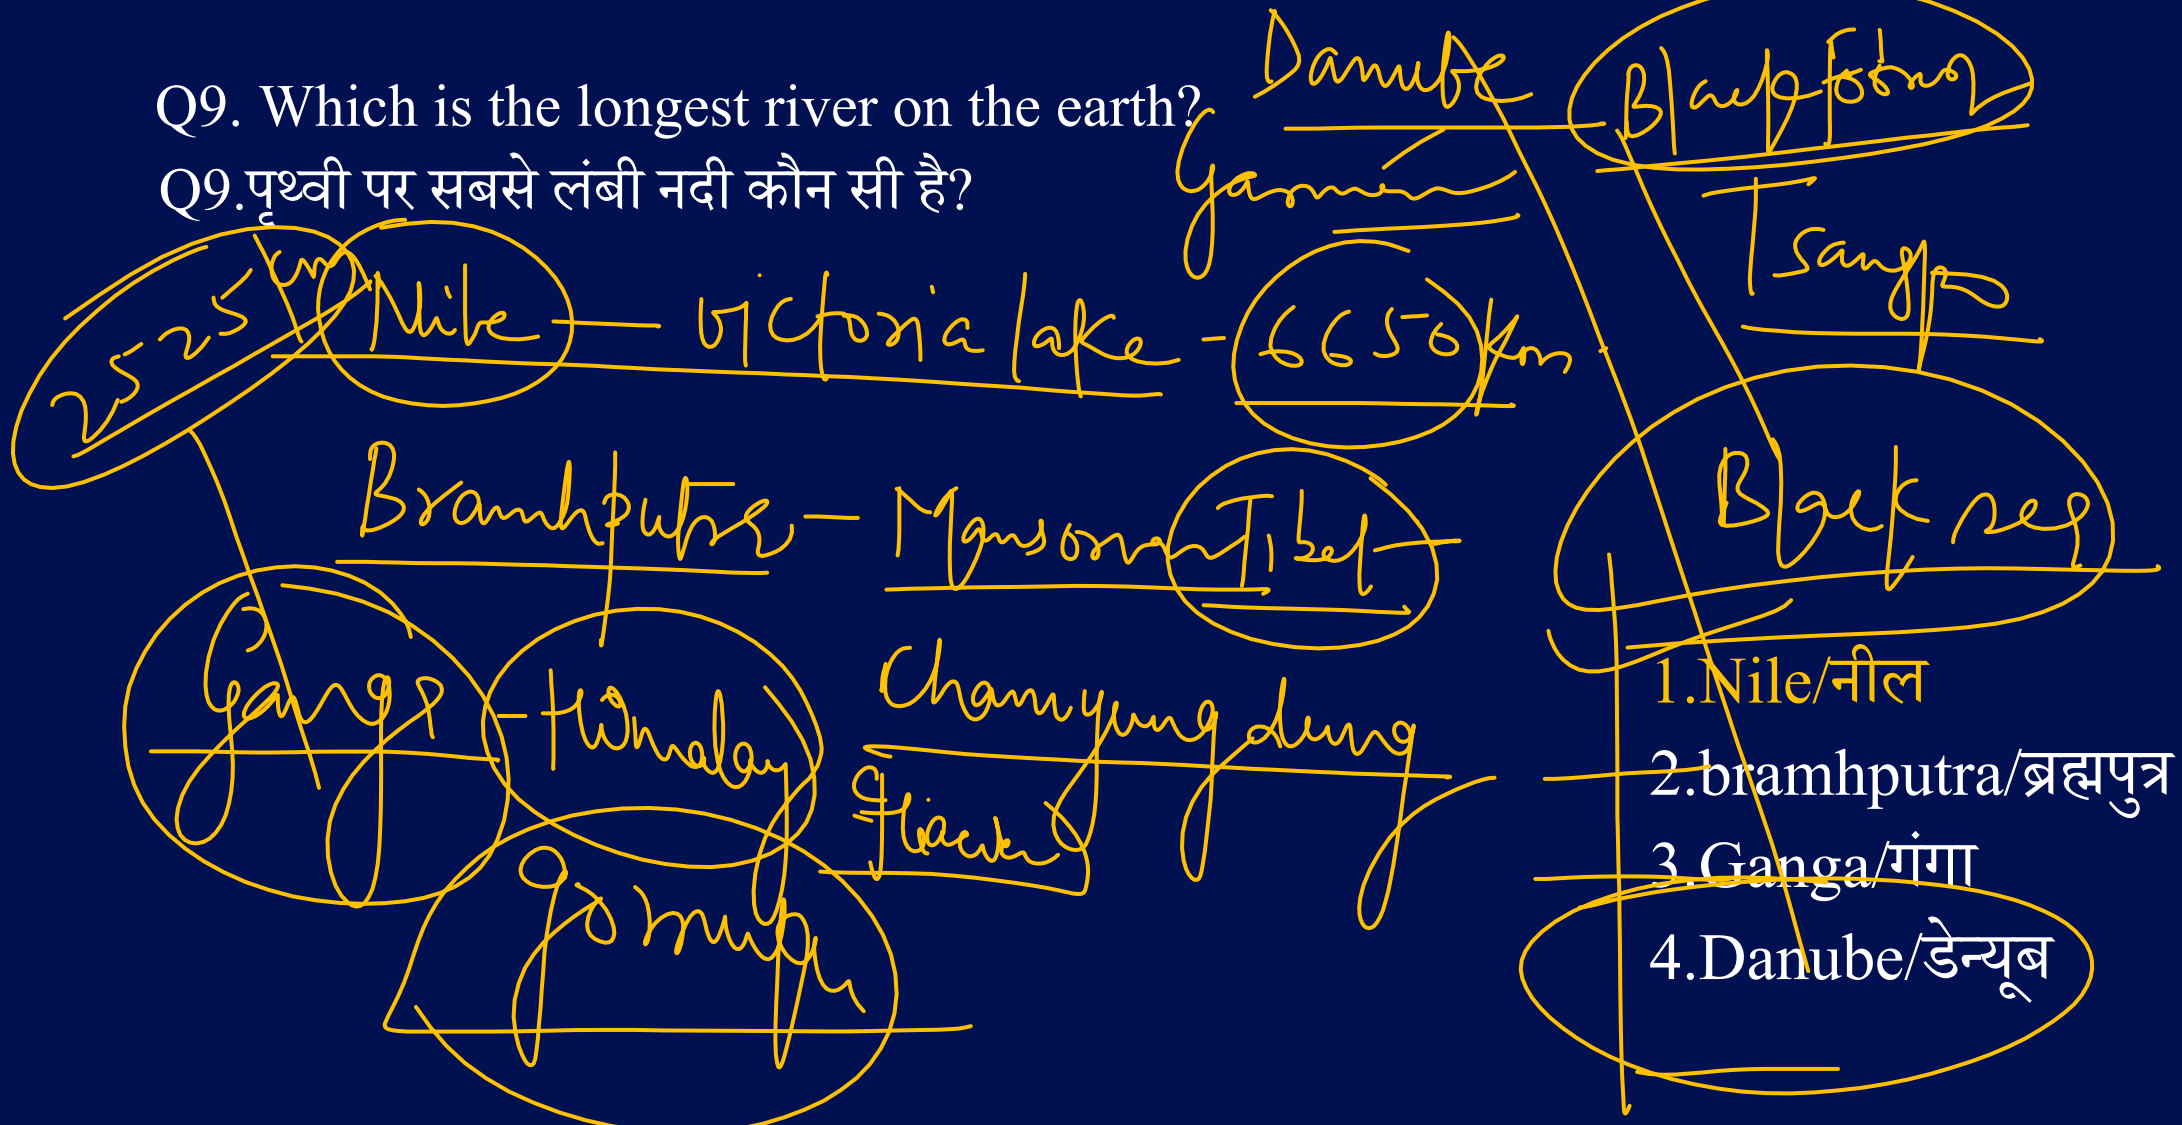 Q9. Which is the longest river on the earth?
Q9.पृथ्वी पर सबसे लंबी नदी कौन सी है?
Danube
Germany
Tsangpo
2525 km
Nile — victoria lake - 6650 Km
Bramhputra — Mansorovar Tibet —
Black sea
Ganga - Himalay
Chamyungdung
Glacier
gomukh
1.Nile/नील
2.bramhputra/ब्रह्मपुत्र
3.Ganga/गंगा
4.Danube/डेन्यूब